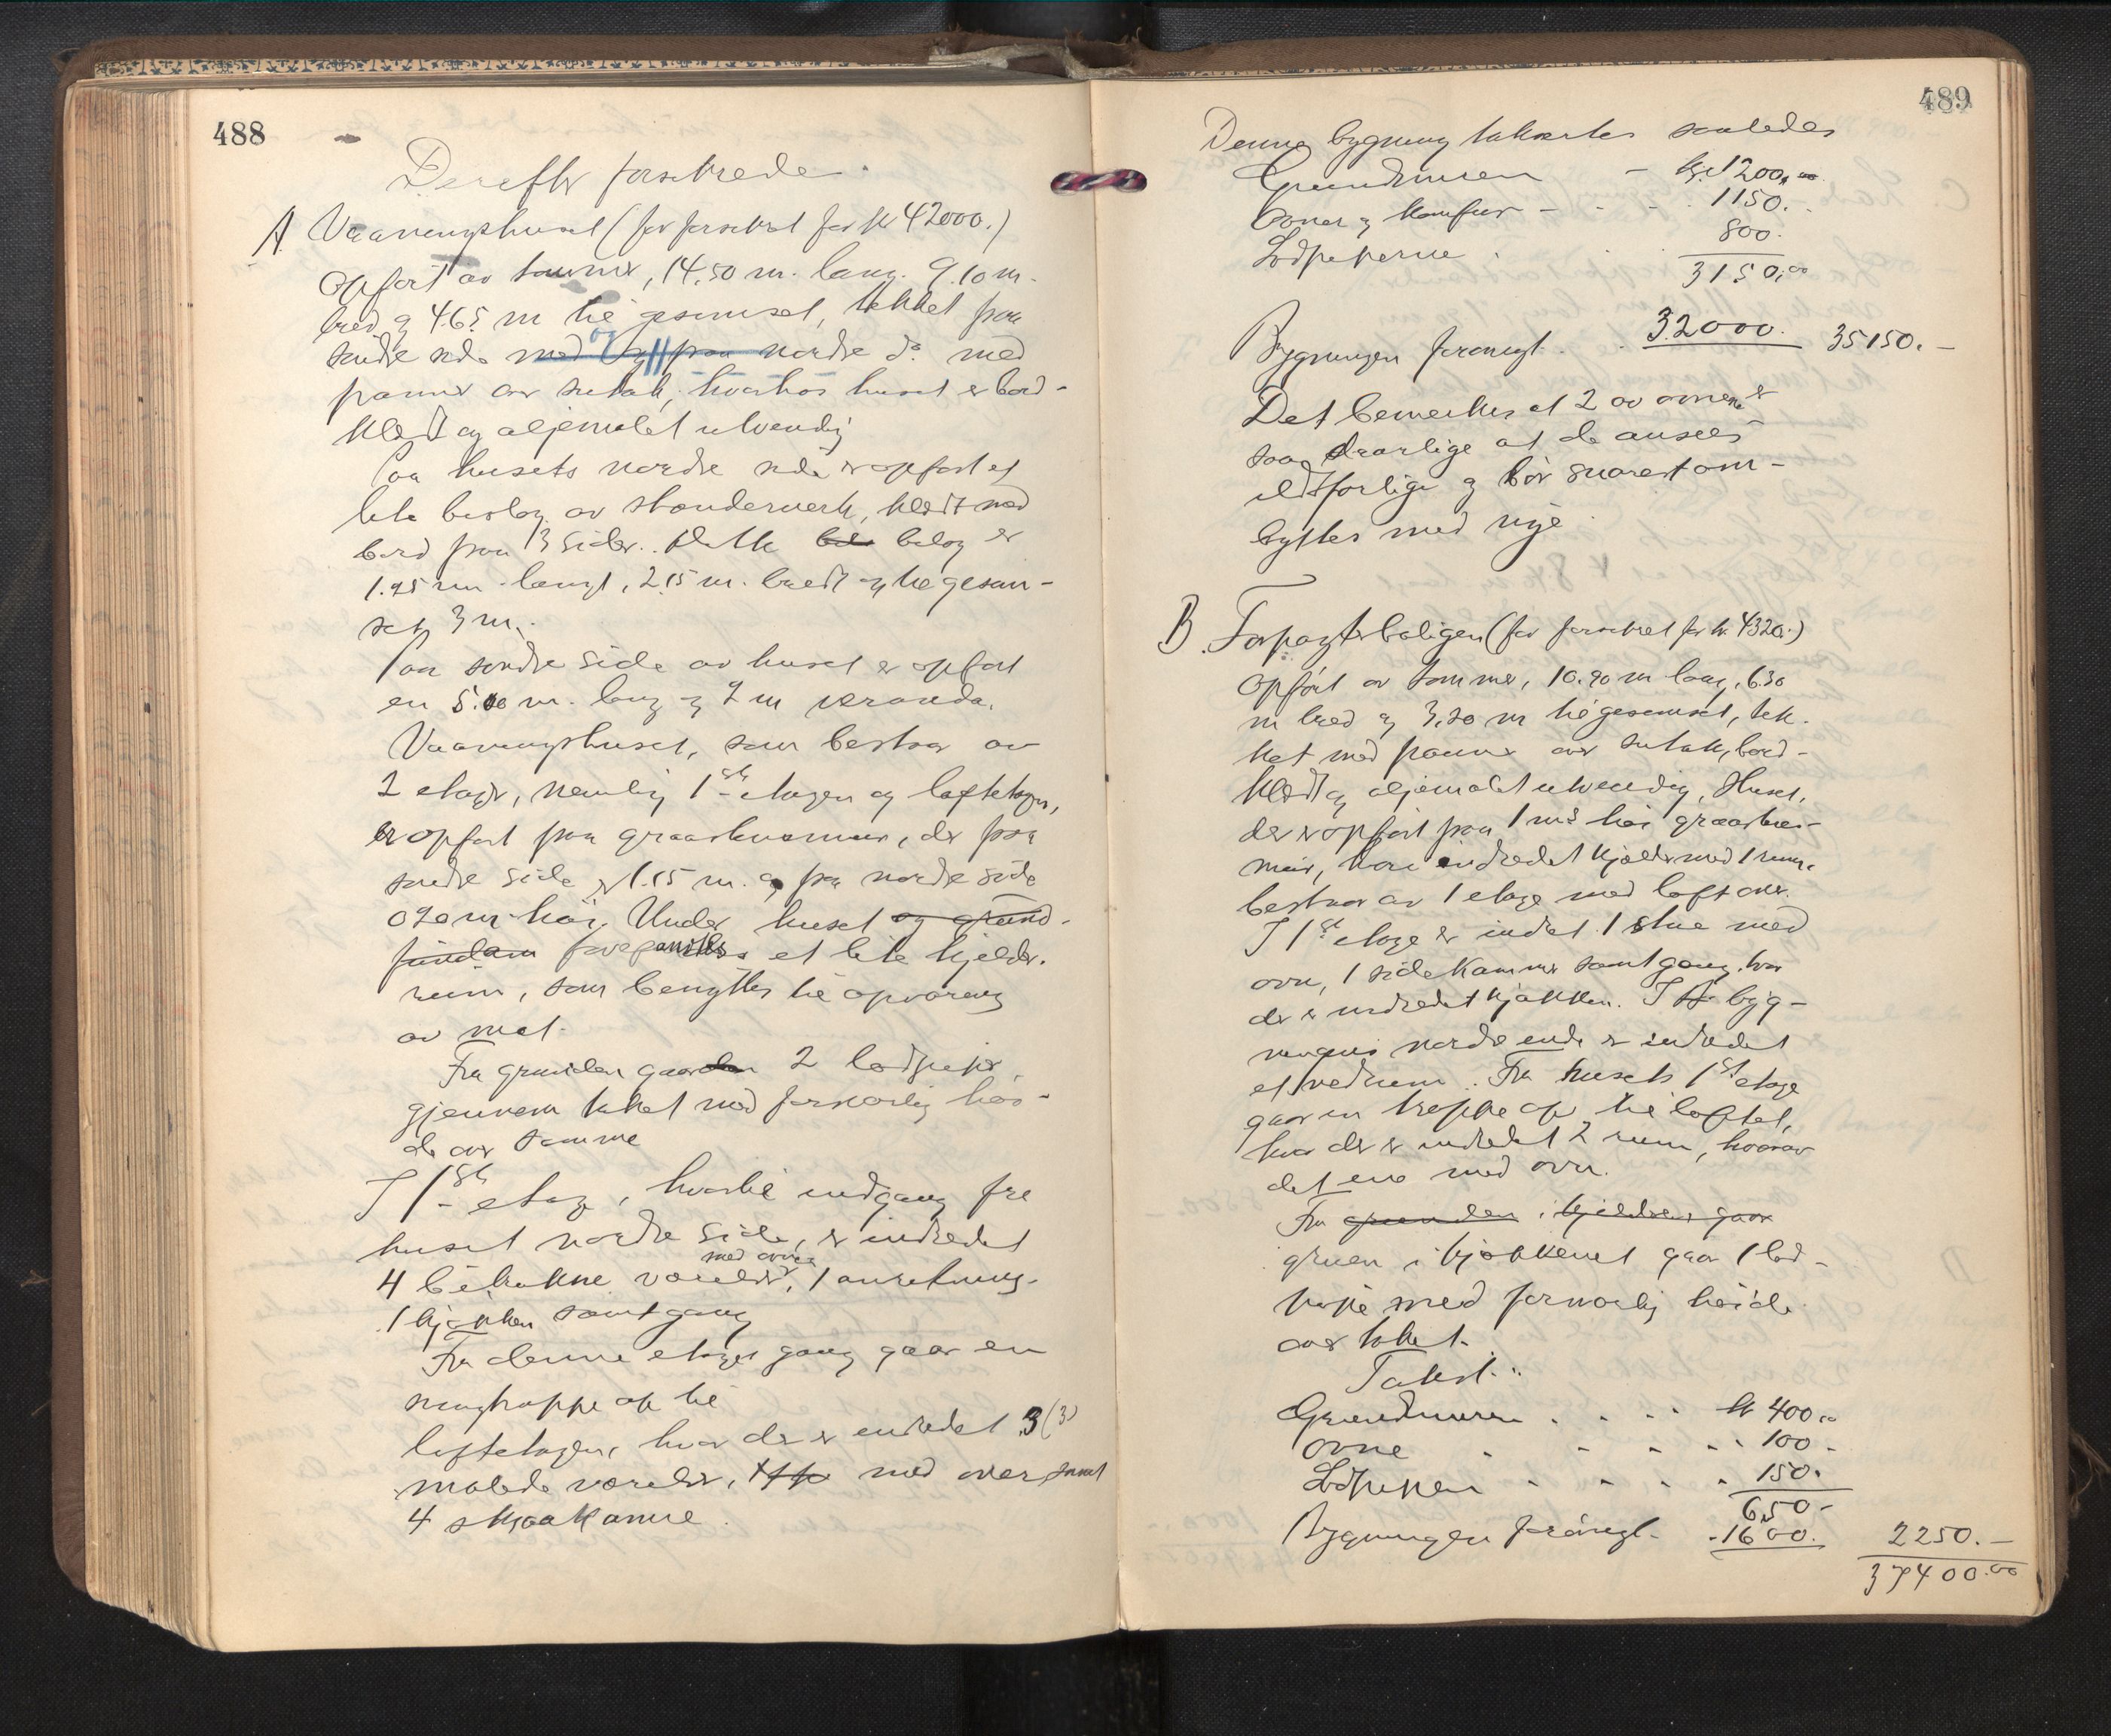 488
Derefter forretrede
A. Vaaningshuset (før forsikret for kr 42000.)
opført av tømmer, 14,50 m. lang. 9.10 m.
bred og 4.65 m til gesimset, tekket paa
søndre side med og paa nordre do. med
panner over sutak, hvorhos huset er bord-
klædt og oljemalet utvendig
Paa husets nordre side er opført et
lite bislag av stænderverk, klædt med
bord paa 3 sider. Dette bis belag er
1.95 m. langt, 2.15 m. bredt og til gesim-
set 3 m.
Paa søndre side av huset er opført
en 5.00 m. lang og 2 m veranda.
Vaaningshuset, som bestaar av
2 etager, nemlig 1ste etagen og loftetagen,
er opført paa graastensmur, der paa
søndre side er 1.15 m. og paa nordre side
0 90 m høi. Under huset og grund-
et lite kjelder-
rum, som benyttes til opvaring
av mat.
Fra grunden gaar 2 lodpiper
gjennem taket med forsvarlig høi-
de over samme
I 1ste etage, hvortil indgang fra
huset nordre side, er indredet
med ovne
4 betrukne værelser, 1 anretning-
1 kjøkken samt gang
Fra denne etages gang gaar en
svingtrappe op til
loftetagen, hvor der er indredet 3 (3)
malede værelser, med ovner samt
4 skraakamre.
489
Denne bygning taksertes saaledes
Grundmuren - kr 1200,00
Ovner og komfur - - - 1150.
Lodpiperne . . 800.
3150,00
Bygningen forøvrigt . . 32000. 35150.-
Det bemerkes at 2 av ovnene er
saa daarlige at de ansees
ildsfarlige og bør snarest om-
byttes med nye
B. Forpagterboligen (før forsikret for kr. 4320.)
opført av tømmer, 10.90 m lang, 6.30
m bred og 3,20 m til gesimset, tek-
ket med panner over sutak, bord-
klædt og oljemalet utvendig. Huset,
der er opført paa 1 m høi graastens-
mur, har indredet kjelder med 1 rum.
bestaar av 1 etage med loft over.
I 1ste etage er indret 1 stue med
ovn, 1 sidekammer samt gang, hvor
der er indredet kjøkken. I byg-
ningens nordre ende er indredet
et vedrum. Fra husets 1ste etage
gaar en trappe op til loftet,
hvor der er indredet 2 rum, hvorav
det ene med ovn.
Fra grunden i kjelderen gaar
gruen i kjøkkenet gaar 1 lod-
pipe med forsvarlig høide
over taket.
Takst:
Grundmuren . . . . kr 400,00
Ovne - - - - 100 -
Lodpipen - - - - 150.
650-
Bygningen forøvrigt - 1600. 2250.-
37400.00